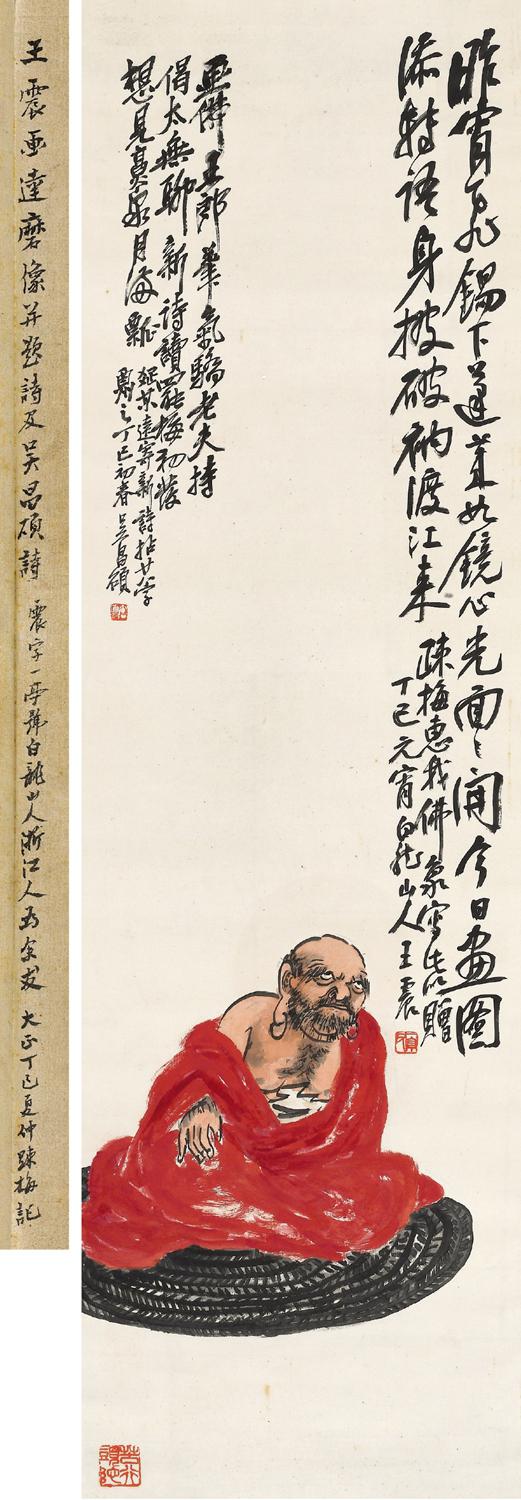 昨宵飛錫下蓬萊如鏡心光面〻開今日畫圖
添轉語身披破衲渡江来
疎梅惠我佛象寫此以贈
丁巳元宵白龍山人王震
王郎筆氣驕老夫持
倡太無聊新詩讀罷梅初落
想見泉月滿瓢
遠寄新詩拈廿字
丁巳初春吴昌碩
王震画達磨像并題詩及吴昌碩詩
震字一亭號白龍山人浙江人為余友
大正丁巳夏仲疎梅記